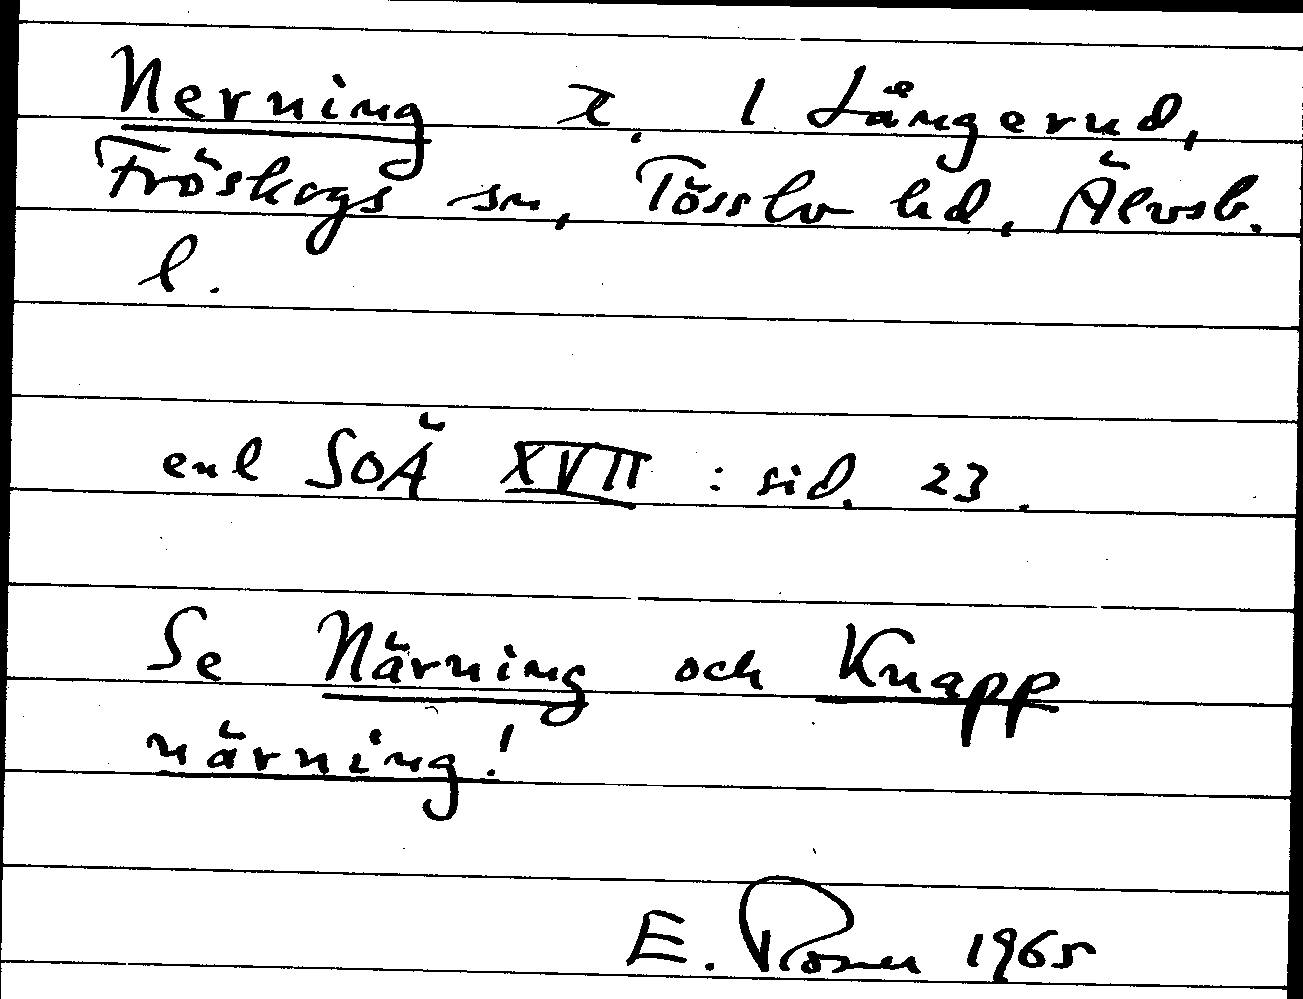 Nerning t. 1 Långerud,
Fröskogs sn, Tössbo hd, Älvsb.
l.
enl SOÄ XVII : sid. 23.
Se Närning och Knapp
närning!
E. Rosner 1965